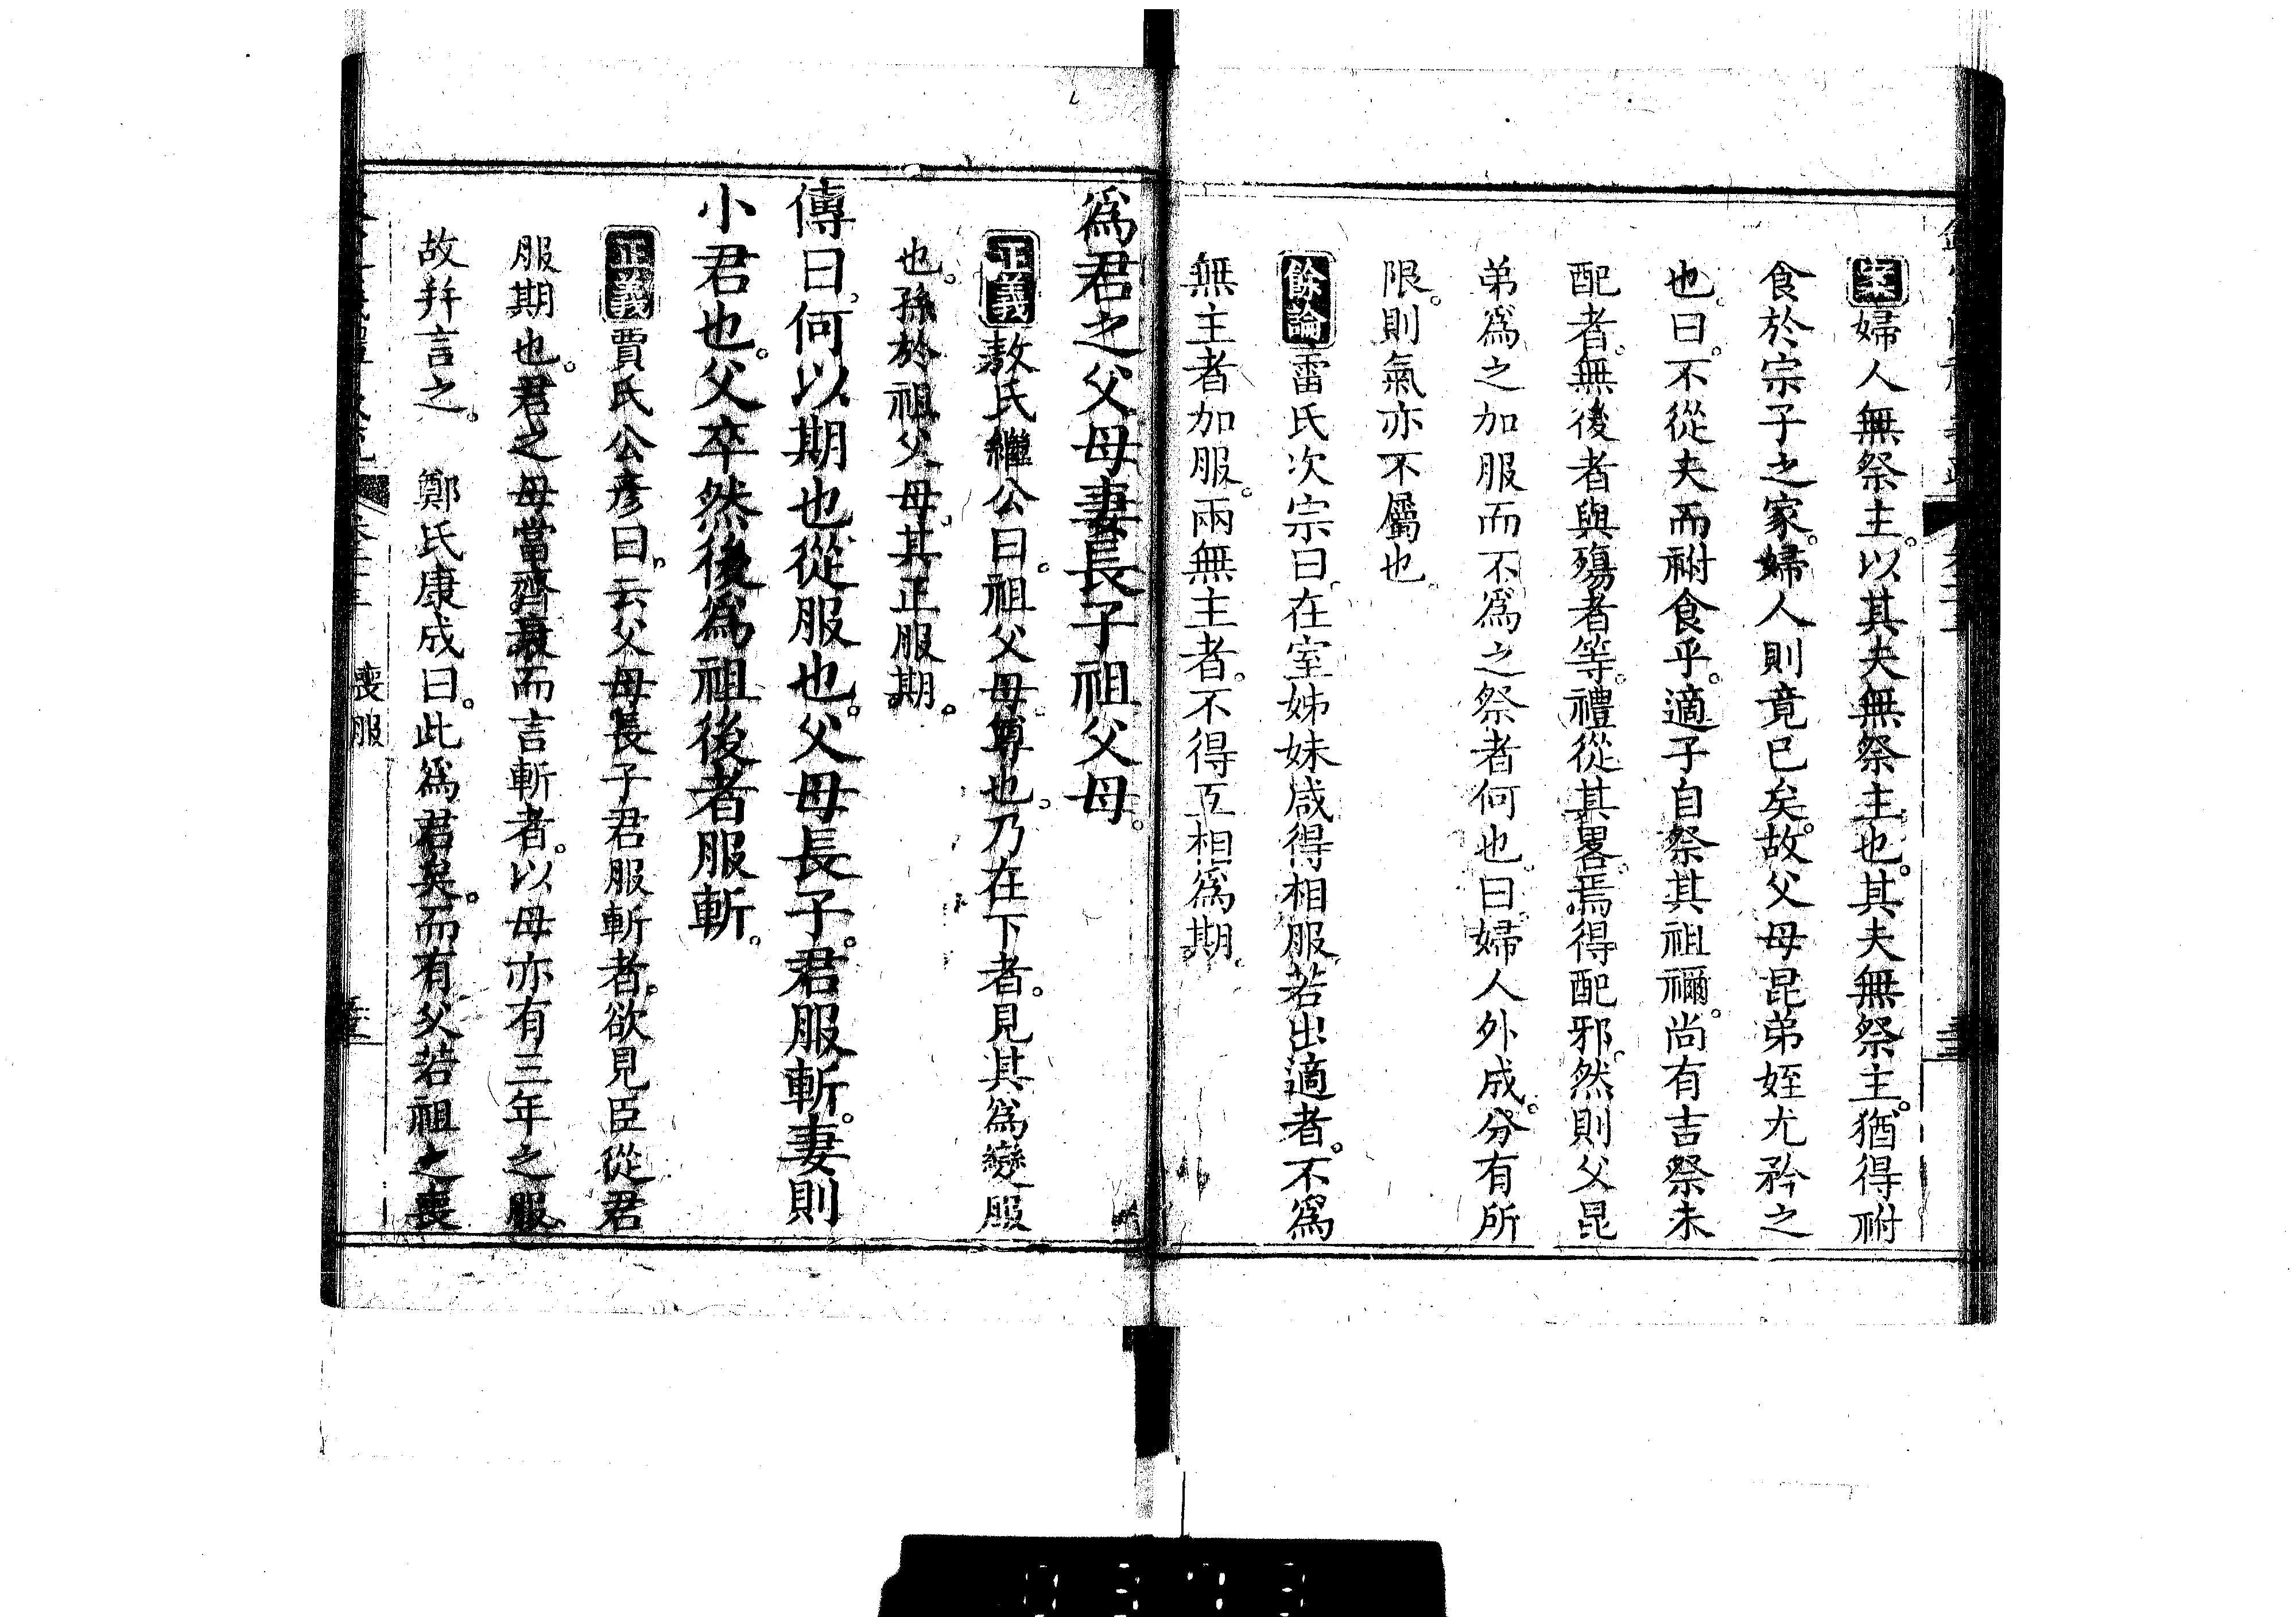 案婦人無祭主。以其夫無祭主也。其夫無祭主。猶得祔
食於宗子之家。婦人則竟已矣。故父母昆弟姪尤矜之
也。曰。不從夫而祔食乎。適子自祭其祖禰。尚有吉祭未
配者。無後者與殤者等。禮從其畧。焉得配邪。然則父昆
弟爲之加服而不爲之祭者何也。曰。婦人外成。分有所
限。則氣亦不屬也。
餘論雷氏次宗曰。在室姊妹咸得相服。若出適者。不爲
無主者加服。兩無主者。不得互相爲期。
爲君之父母妻長子祖父母。
正義敖氏繼公曰。祖父母尊也。乃在下者。見其爲變服
也。孫於祖父母。其正服期。
傳曰。何以期也。從服也。父母長子。君服斬。妻則
小君也。父卒然後爲祖後者服斬。
正義賈氏公彥曰。云父母長子君服斬者。欲見臣從君
服期也。君之母當齊衰而言斬者。以母亦有三年之服。
故幷言之。 鄭氏康成曰。此爲君矣。而有父若祖之喪
喪服